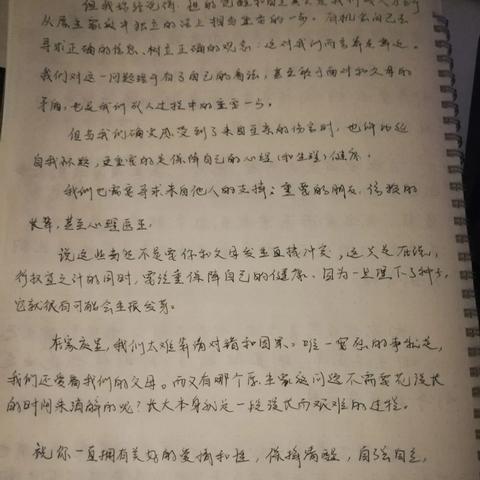 但我始终觉得，性的觉醒和自主其实是我们成人的
从原生家庭中独立的路上相当重要的一步。有机会自己去
寻求正确的信息、树立正确的观念；这对我们而言
我们对这一问题终于有了自己的看法，甚至敢于面对和父母的
矛盾，也是我们成人过程中的重要一步。
但当我们确实感受到了来自至亲的伤害时，也
自我怀疑，更重要的是保障自己的心理(和生理)健康。
我们也需要寻求来自他人的支持：重要的朋友、信赖的
长辈，甚至心理医生。
说这些当然不是要你和父母发生直接冲突，这只是在说，
行权宜之计的同时，要注重保障自己的健康、因为一旦埋下了种子，
它就很有可能会生根发芽。
在家庭里，我们太难算清对错和因果。唯一肯定的事就是，
我们还爱着我们的父母。而又有哪个原生家庭问题不需要花漫长
的时间来消解的呢？长大本身就是一段漫长而艰难的过程。
祝你一直拥有美好的爱情和性，保持清醒，自强自立。